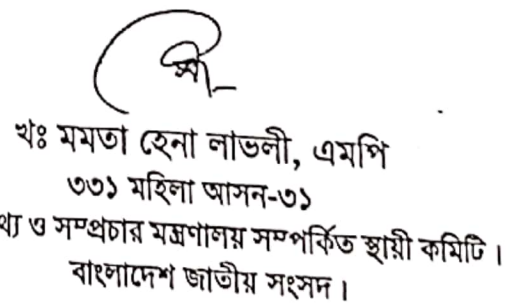 খঃ মমতা হেনা লাভলী, এমপি
৩৩১ মহিলা আসন-৩১
থ্য ও সম্প্রচার মন্ত্রণালয় সম্পর্কিত স্থায়ী কমিটি।
বাংলাদেশ জাতীয় সংসদ।